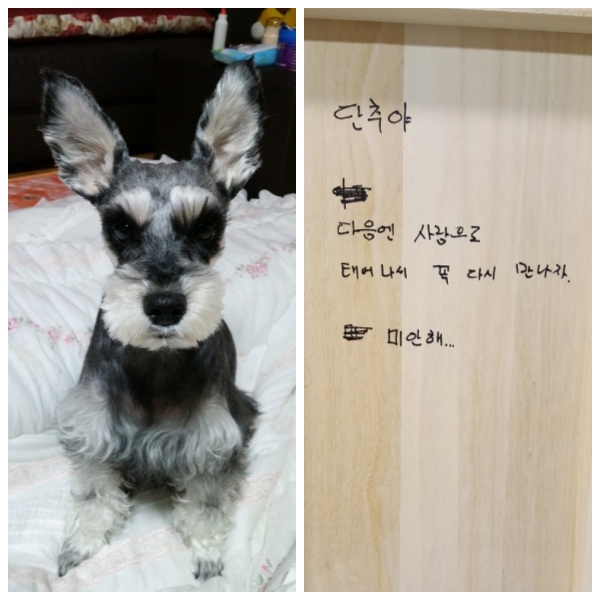 단추야
다음엔 사람으로
태어나서 꼭 다시 만나자.
미안해...